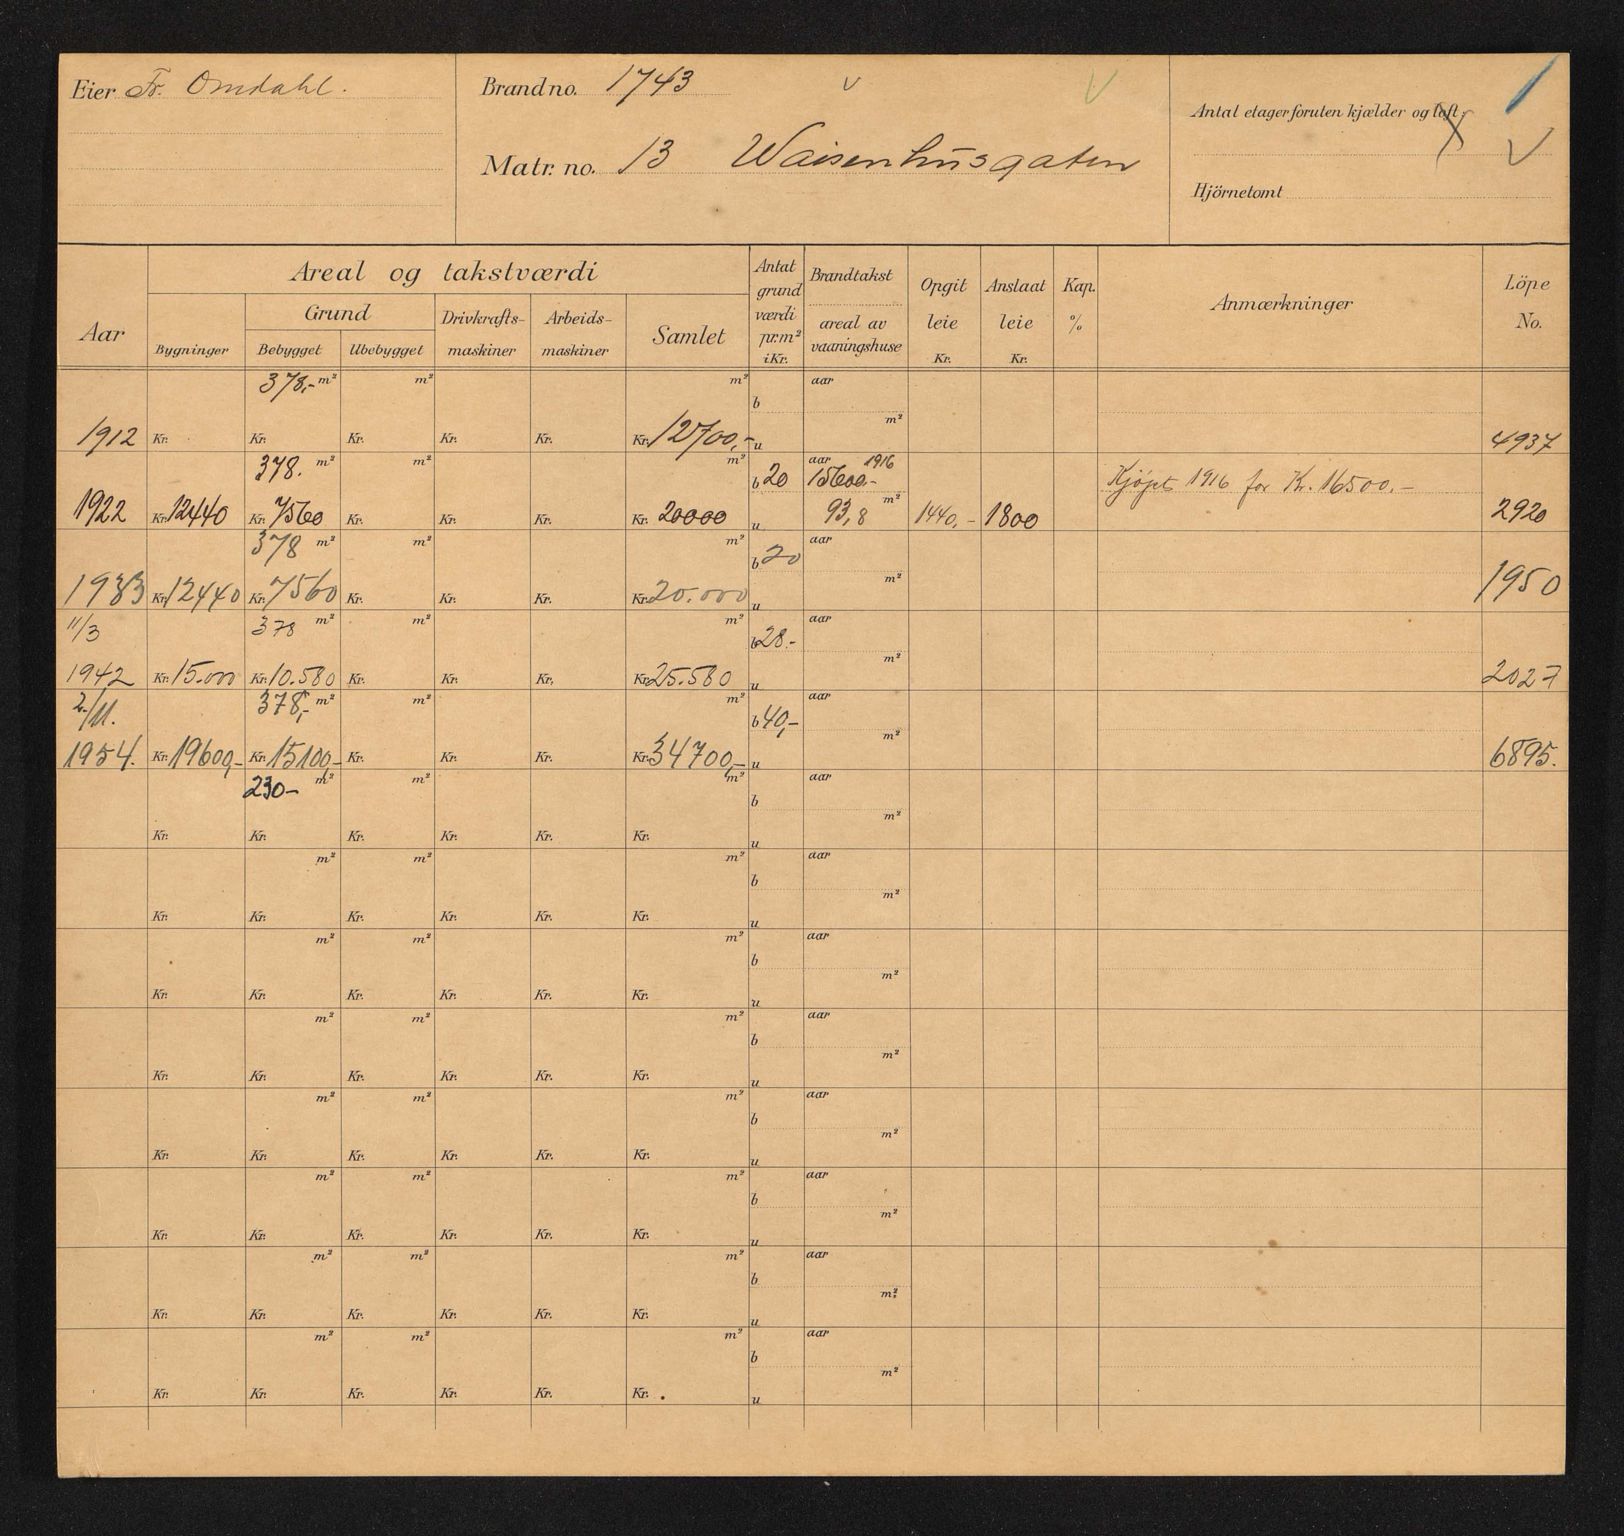 Eier Fr. Omdahl.
Brandno. 1743
Matr. no. 13 Waisenhusgaten
Antal etager foruten kjælder og loft:
Hjörnetomt
Aar
Areal og takstværdi
Bygninger
Grund
Bebygget Ubebygget
Drivkrafts-
maskiner
Arbeids-
maskiner
Samlet
Antat
grund
værdi
pr.m²
i Kr.
Brandtakst
areal av
vaaningshuse
Opgit
leie
Kr.
Anslaat
leie
Kr.
Kap.
%
Anmærkninger
Löpe
No.
378,- m² m² m² aar
b
m²
1912 Kr. Kr. Kr. Kr. Kr. Kr. 12700,- u 4937
378. m² m² m² b 20 aar 1916
15600.- Kjøpt 1916 for Kr. 16500.-
m²
1922 Kr. 12440 Kr. 7560 Kr. Kr. Kr. Kr. 20000 u 93,8 1440,- 1800 2920
378 m² m² m² b 20 aar
m²
1933 Kr. 12440 Kr. 7560 Kr. Kr. Kr. Kr. 20.000 u 1950
11/3 378 m² m² m² b 28.- aar
m²
1942 Kr. 15.000 Kr. 10.580 Kr. Kr. Kr. Kr. 25.580 u 2027
2/11. 378,- m² m² m² b 40,- aar
m²
1954. Kr. 19600,- Kr. 15100,- Kr. Kr. Kr. Kr. 34700,- u 6895.
230- m² m² m² aar
b
m²
Kr. Kr. Kr. Kr. Kr. Kr. u
m² m² m² aar
b
m²
Kr. Kr. Kr. Kr. Kr. Kr. u
m² m² m² aar
b
m²
Kr. Kr. Kr. Kr. Kr. Kr. u
m² m² m² aar
b
m²
Kr. Kr. Kr. Kr. Kr. Kr. u
m² m² m² aar
b
m²
Kr. Kr. Kr. Kr. Kr. Kr. u
m² m² m² aar
b
m²
Kr. Kr. Kr. Kr. Kr. Kr. u
m² m² m² aar
b
m²
Kr. Kr. Kr. Kr. Kr. Kr. u
m² m² m² aar
b
m²
Kr. Kr. Kr. Kr. Kr. Kr. u